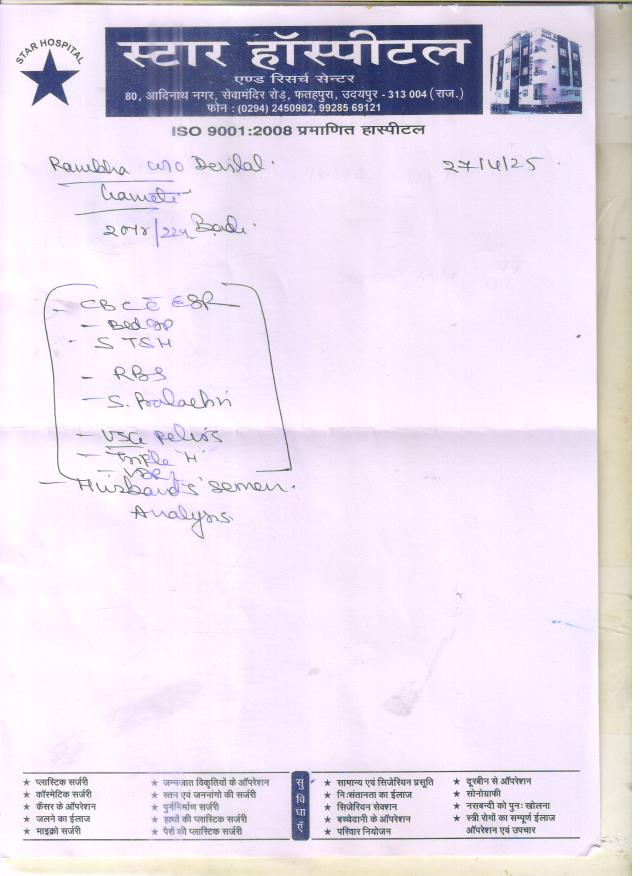 STAR HOSPITAL
स्टार हॉस्पीटल
एण्ड रिसर्च सेन्टर
80, आदिनाथ नगर, सेवामंदिर रोड़, फतहपुरा, उदयपुर - 313 004 (राज.)
फोन : (0294) 2450982, 99285 69121
ISO 9001:2008 प्रमाणित हास्पीटल
Rambha w/o Devilal. 27/4/25
Gameti
Badi.
- CBC ē ESR
- Bld gp
- S TSH
- RBS
- S. Prolactin
- USG pelvis
- Triple 'H'
- VDRL
- Husband's semen.
Analysis.
सुविधाएँ
★ प्लास्टिक सर्जरी
★ कॉस्मेटिक सर्जरी
★ कैंसर के ऑपरेशन
★ जलने का ईलाज
★ माइक्रो सर्जरी
★ जन्मजात विकृतियों के ऑपरेशन
★ स्तन एवं जननांगो की सर्जरी
★ पुर्ननिर्माण सर्जरी
★ हाथों की प्लास्टिक सर्जरी
★ पैरों की प्लास्टिक सर्जरी
★ सामान्य एवं सिजेरियन प्रसूति
★ नि:संतानता का ईलाज
★ सिजेरियन सेक्शन
★ बच्चेदानी के ऑपरेशन
★ परिवार नियोजन
★ दूरबीन से ऑपरेशन
★ सोनोग्राफी
★ नसबन्दी को पुन: खोलना
★ स्त्री रोगों का सम्पूर्ण ईलाज
ऑपरेशन एवं उपचार